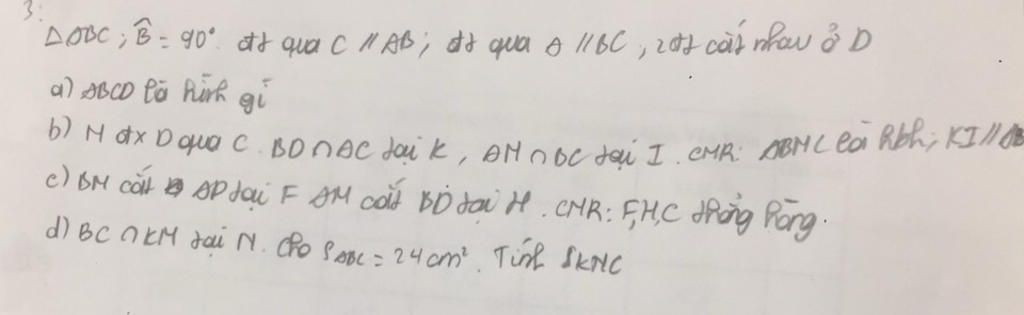 3.
△ABC ; B̂ = 90° đt qua C // AB ; đt qua A // BC , 2 đt cắt nhau ở D
a) ABCD là hình gì
b) M đx D qua C . BD ∩ AC tại K , AM ∩ BC tại I . CMR: ABMC là hbh ; KI // AB
c) BM cắt AD tại F AM cắt BD tại H . CMR: F,H,C thẳng hàng.
d) BC ∩ KM tại N . Cho S ABC = 24 cm² . Tính S KNC